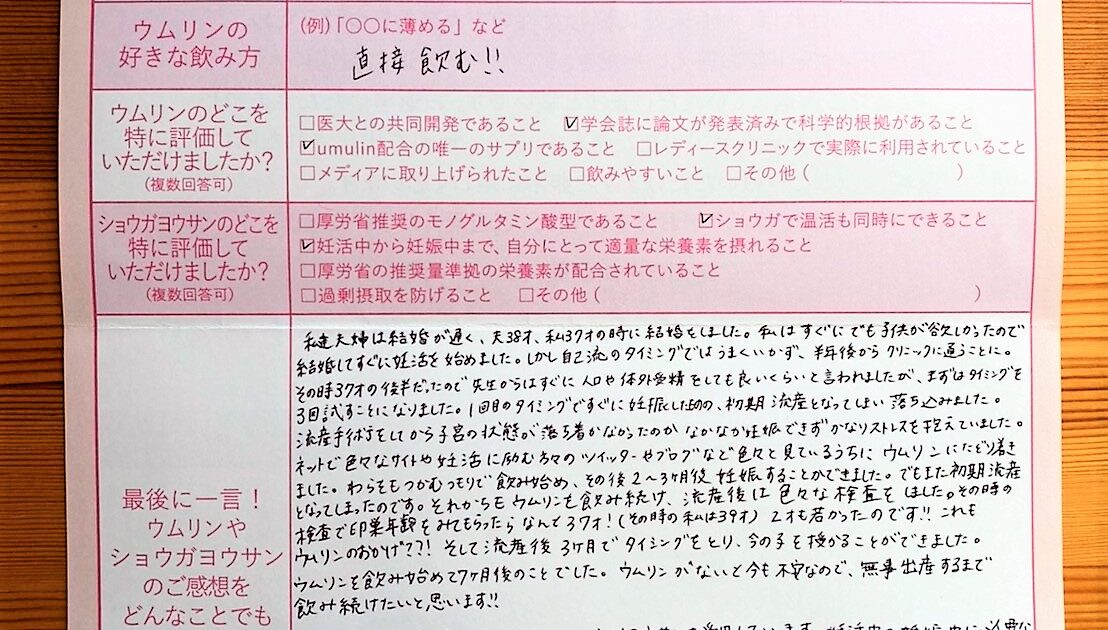 ウムリンの
好きな飲み方
(例)「〇〇に薄める」など
直接 飲む!!
ウムリンのどこを
特に評価して
いただけましたか?
(複数回答可)
□医大との共同開発であること ☑学会誌に論文が発表済みで科学的根拠があること
☑umulin配合の唯一のサプリであること □レディースクリニックで実際に利用されていること
□メディアに取り上げられたこと □飲みやすいこと □その他 ( )
ショウガヨウサンのどこを
特に評価して
いただけましたか?
(複数回答可)
□厚労省推奨のモノグルタミン酸型であること ☑ショウガで温活も同時にできること
☑妊活中から妊娠中まで、自分にとって適量な栄養素を摂れること
□厚労省の推奨量準拠の栄養素が配合されていること
□過剰摂取を防げること □その他 ( )
最後に一言!
ウムリンや
ショウガヨウサン
のご感想を
どんなことでも
私達夫婦は結婚が遅く、夫38才、私37才の時に結婚をしました。私はすぐにでも子供が欲しかったので
結婚してすぐに妊活を始めました。しかし自己流のタイミングではうまくいかず、半年後からクリニックに通うことに。
その時37才の後半だったので先生からはすぐに人口や体外受精をしても良いくらいと言われましたが、まずはタイミングを
3回試すことになりました。1回目のタイミングですぐに妊娠したものの、初期流産となってしまい落ち込みました。
流産手術をしてから子宮の状態が落ち着かなかったのかなかなか妊娠できずかなりストレスを抱えていました。
ネットで色々なサイトや妊活に励む方々のツイッターやブログなど色々と見ているうちにウムリンにたどり着き
ました。わらをもつかむつもりで飲み始め、その後2〜3ヶ月後妊娠することができました。でもまた初期流産
となってしまったのです。それからもウムリンを飲み続け、流産後は色々な検査をしました。その時の
検査で卵巣年齢をみてもらったらなんと37才!(その時の私は39才) 2才も若かったのです!! これも
ウムリンのおかげ??! そして流産後3ヶ月でタイミングをとり、今の子を授かることができました。
ウムリンを飲み始めて7ヶ月後のことでした。ウムリンがないと今も不安なので、無事出産するまで
飲み続けたいと思います!!